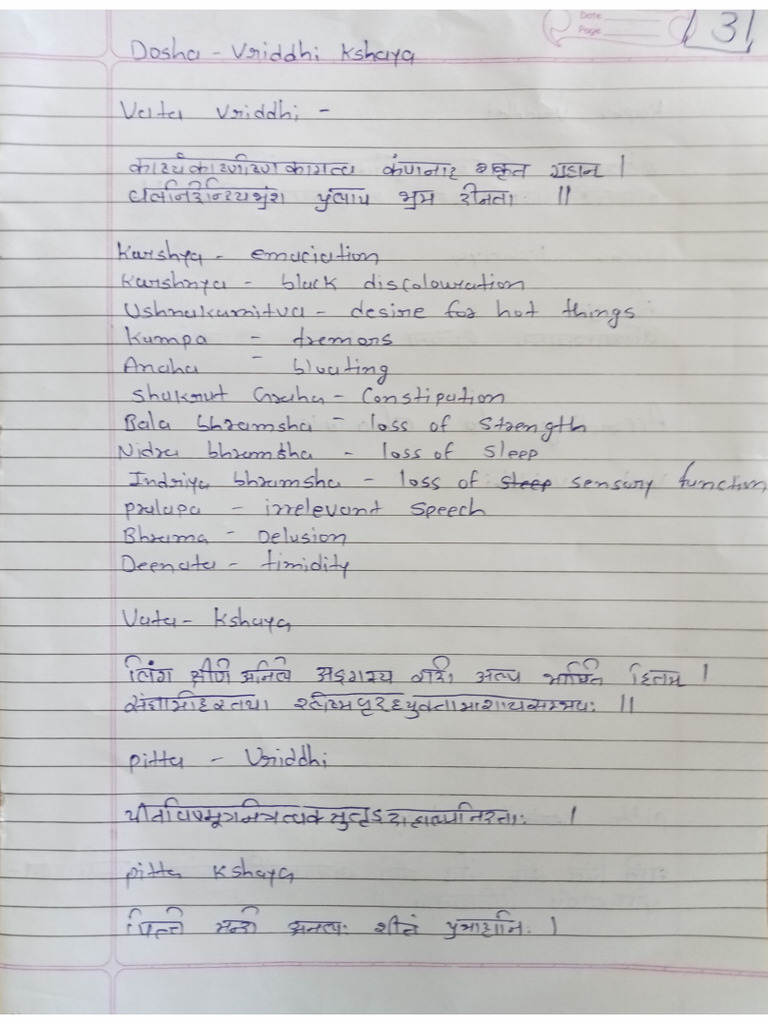 Date
Page
31
Dosha - Vriddhi Kshaya
Vata Vriddhi -
शकृत ग्रहान ।
प्रलाप भ्रम दीनता ॥
Karshya - emaciation
Karshnya - black discolouration
Ushnakamitva - desire for hot things
Kampa - tremors
Anaha - bloating
Shakrut Graha - Constipation
Bala bhramsha - loss of strength
Nidra bhramsha - loss of sleep
Indriya bhramsha - loss of sleep sensory function
pralapa - irrelevant speech
Bhrama - Delusion
Deenata - timidity
Vata - Kshaya
लिंग क्षीणे अनिले अङ्गस्य अल्प भाषिते हितम ।
pitta - Vriddhi
pitta Kshaya
पित्ते मन्दो अनलः शीतं प्रभाहानिः ।